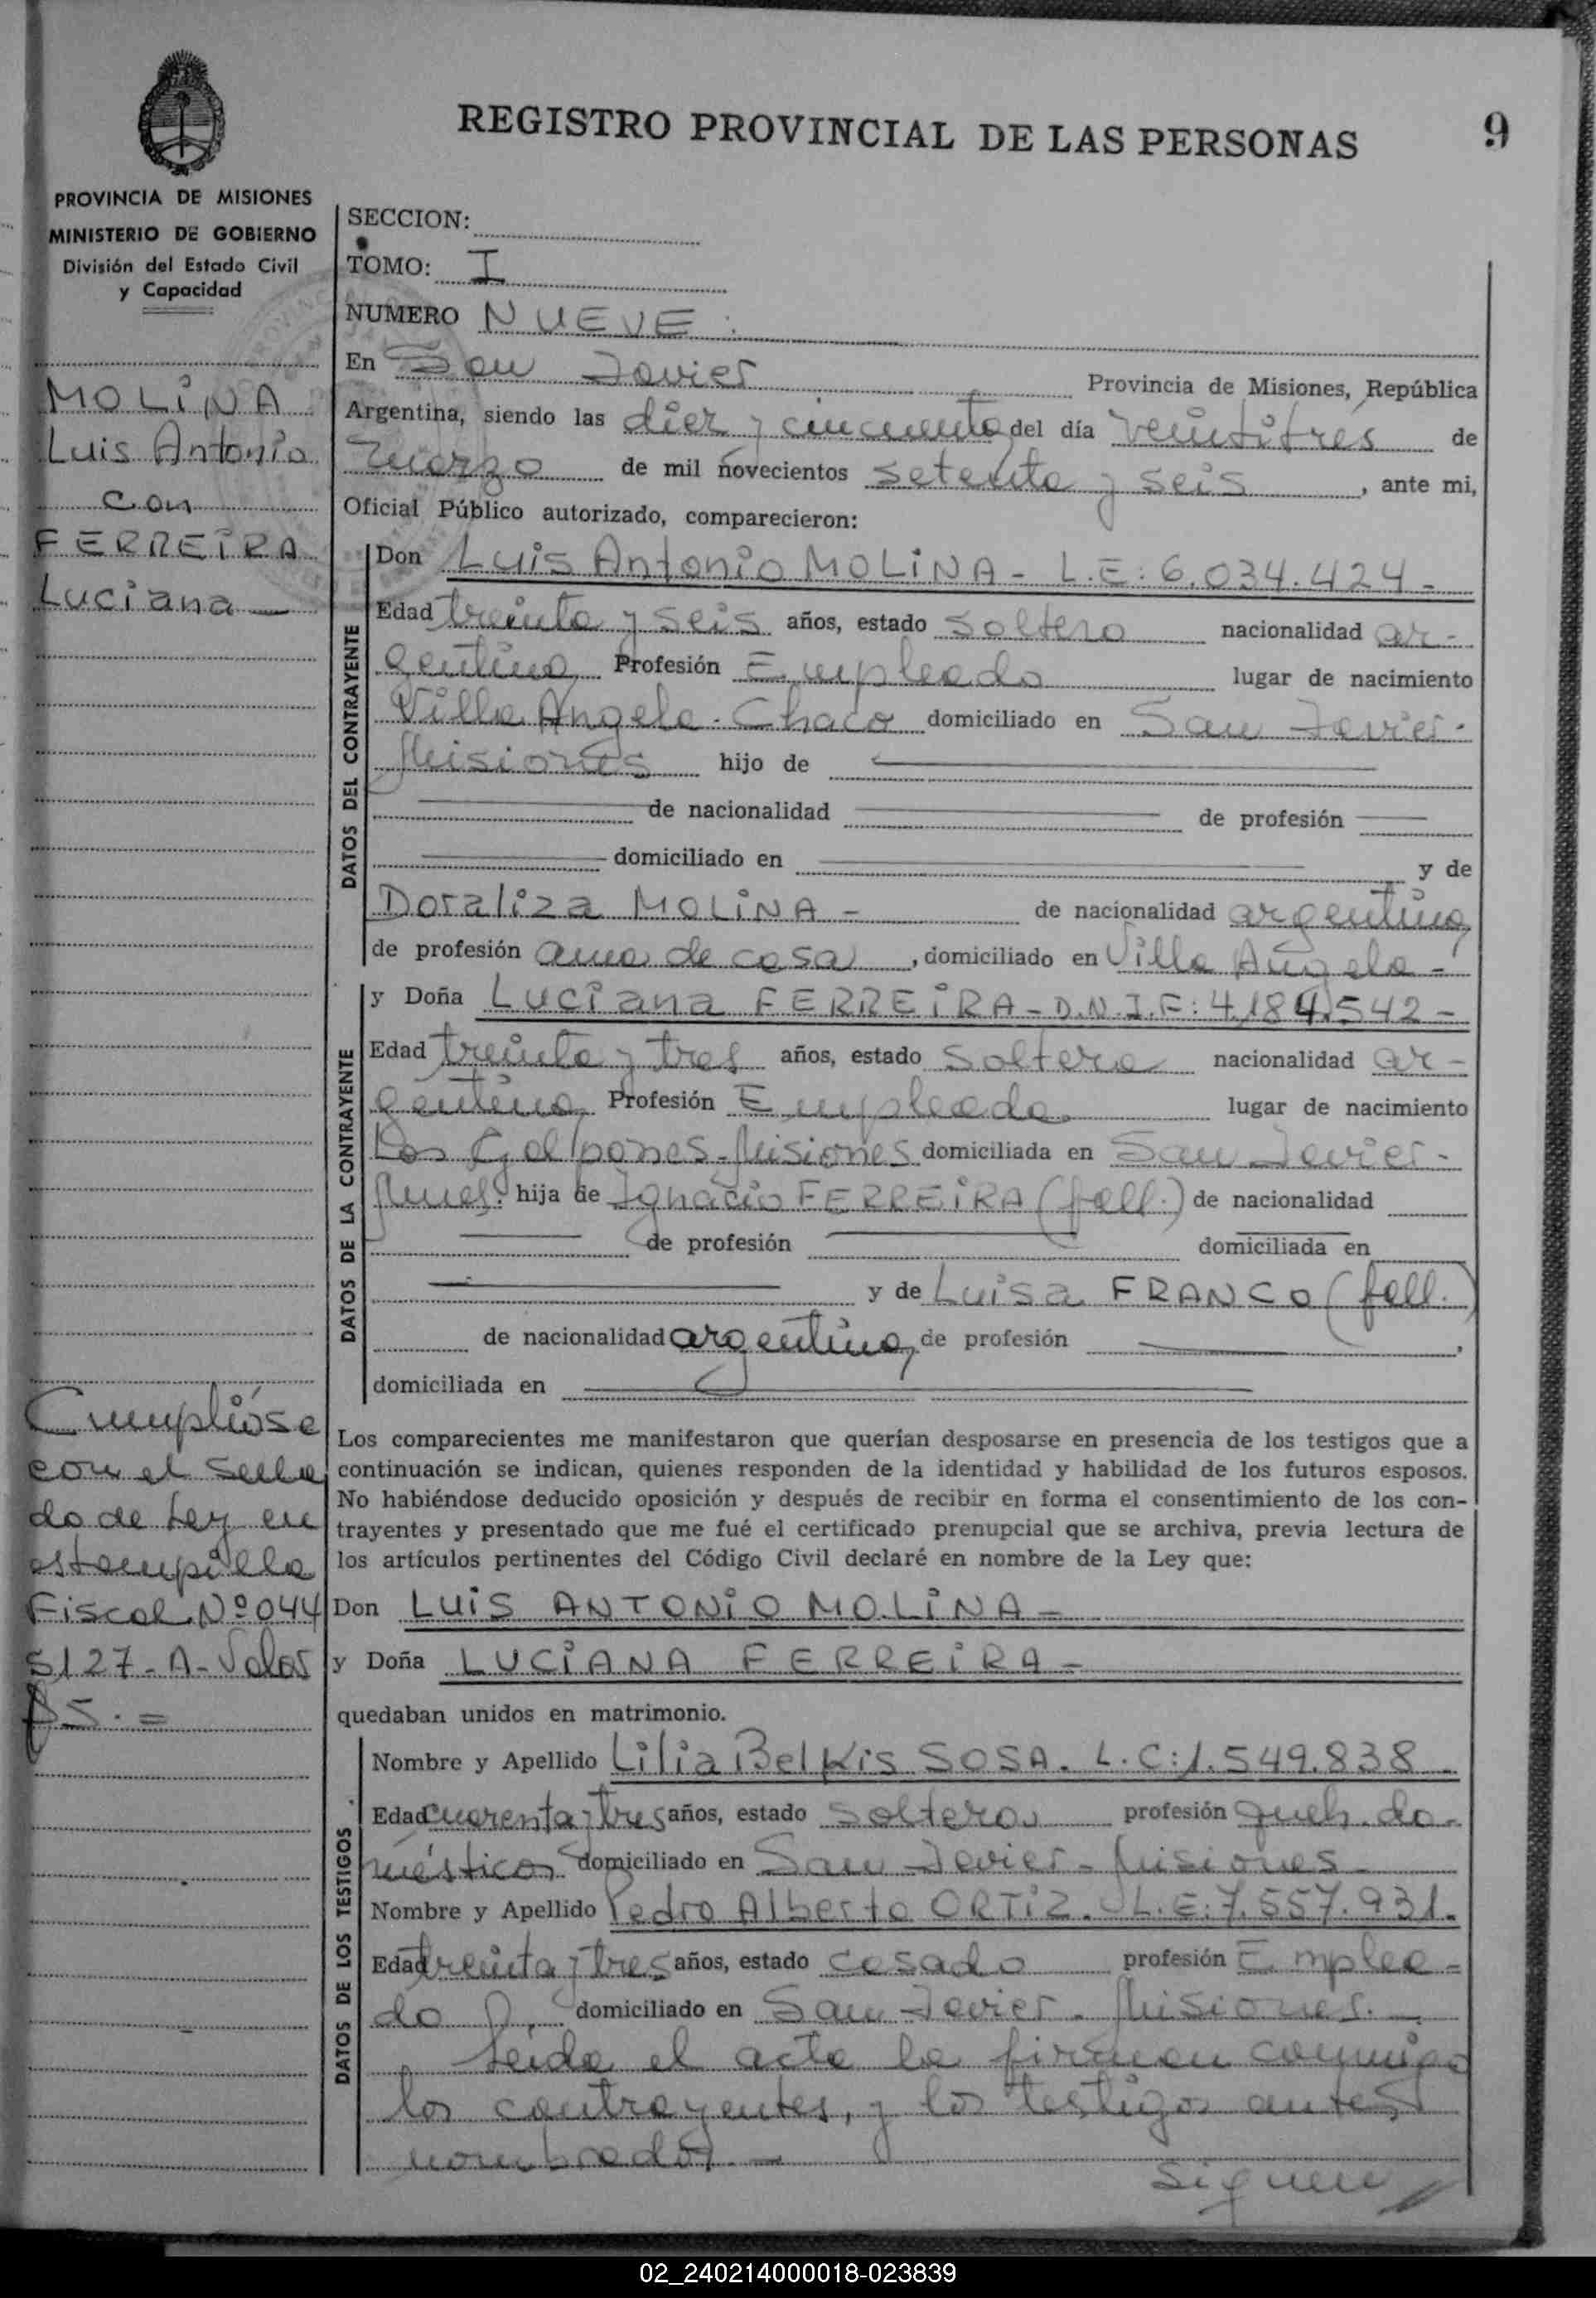 REGISTRO PROVINCIAL DE LAS PERSONAS
9
PROVINCIA DE MISIONES
MINISTERIO DE GOBIERNO
División del Estado Civil
y Capacidad
MOLINA
Luis Antonio
con
FERREIRA
Luciana
SECCION:
TOMO: I
NUMERO NUEVE.
En San Javier Provincia de Misiones, República
Argentina, siendo las diez y cincuenta del día veintitrés de
marzo de mil novecientos setenta y seis, ante mi,
Oficial Público autorizado, comparecieron:
DATOS DEL CONTRAYENTE
Don Luis Antonio MOLINA - L.E: 6.034.424 -
Edad treinta y seis años, estado soltero nacionalidad ar-
gentina Profesión Empleado lugar de nacimiento
Villa Angela - Chaco domiciliado en San Javier -
Misiones hijo de
de nacionalidad de profesión
domiciliado en y de
Doraliza MOLINA - de nacionalidad argentina
de profesión ama de casa, domiciliado en Villa Angela -
DATOS DE LA CONTRAYENTE
y Doña Luciana FERREIRA - D.N.I.F: 4.184.542 -
Edad treinta y tres años, estado soltera nacionalidad ar-
gentina Profesión Empleada lugar de nacimiento
Los Galpones - Misiones domiciliada en San Javier -
Mnes. hija de Ignacio FERREIRA (fall.) de nacionalidad
de profesión domiciliada en
y de Luisa FRANCO (fall.)
de nacionalidad argentina, de profesión ,
domiciliada en
Cumplióse
con el sella
do de Ley en
estampilla
Fiscal Nº 044
5127 - A - Valor
$5. =
Los comparecientes me manifestaron que querían desposarse en presencia de los testigos que a
continuación se indican, quienes responden de la identidad y habilidad de los futuros esposos.
No habiéndose deducido oposición y después de recibir en forma el consentimiento de los con-
trayentes y presentado que me fué el certificado prenupcial que se archiva, previa lectura de
los artículos pertinentes del Código Civil declaré en nombre de la Ley que:
Don LUIS ANTONIO MOLINA -
y Doña LUCIANA FERREIRA -
quedaban unidos en matrimonio.
DATOS DE LOS TESTIGOS
Nombre y Apellido Lilia Belkis SOSA. L.C: 1.549.838 -
Edad cuarenta y tres años, estado soltera profesión queh. do-
mésticos domiciliado en San Javier - Misiones -
Nombre y Apellido Pedro Alberto ORTIZ. L.E: 7.557.931.
Edad treinta y tres años, estado casado profesión Emplea-
do domiciliado en San Javier - Misiones. -
Leída el acta la firman conmigo
los contrayentes, y los testigos antes
nombrados. -
Siguen
02_240214000018-023839